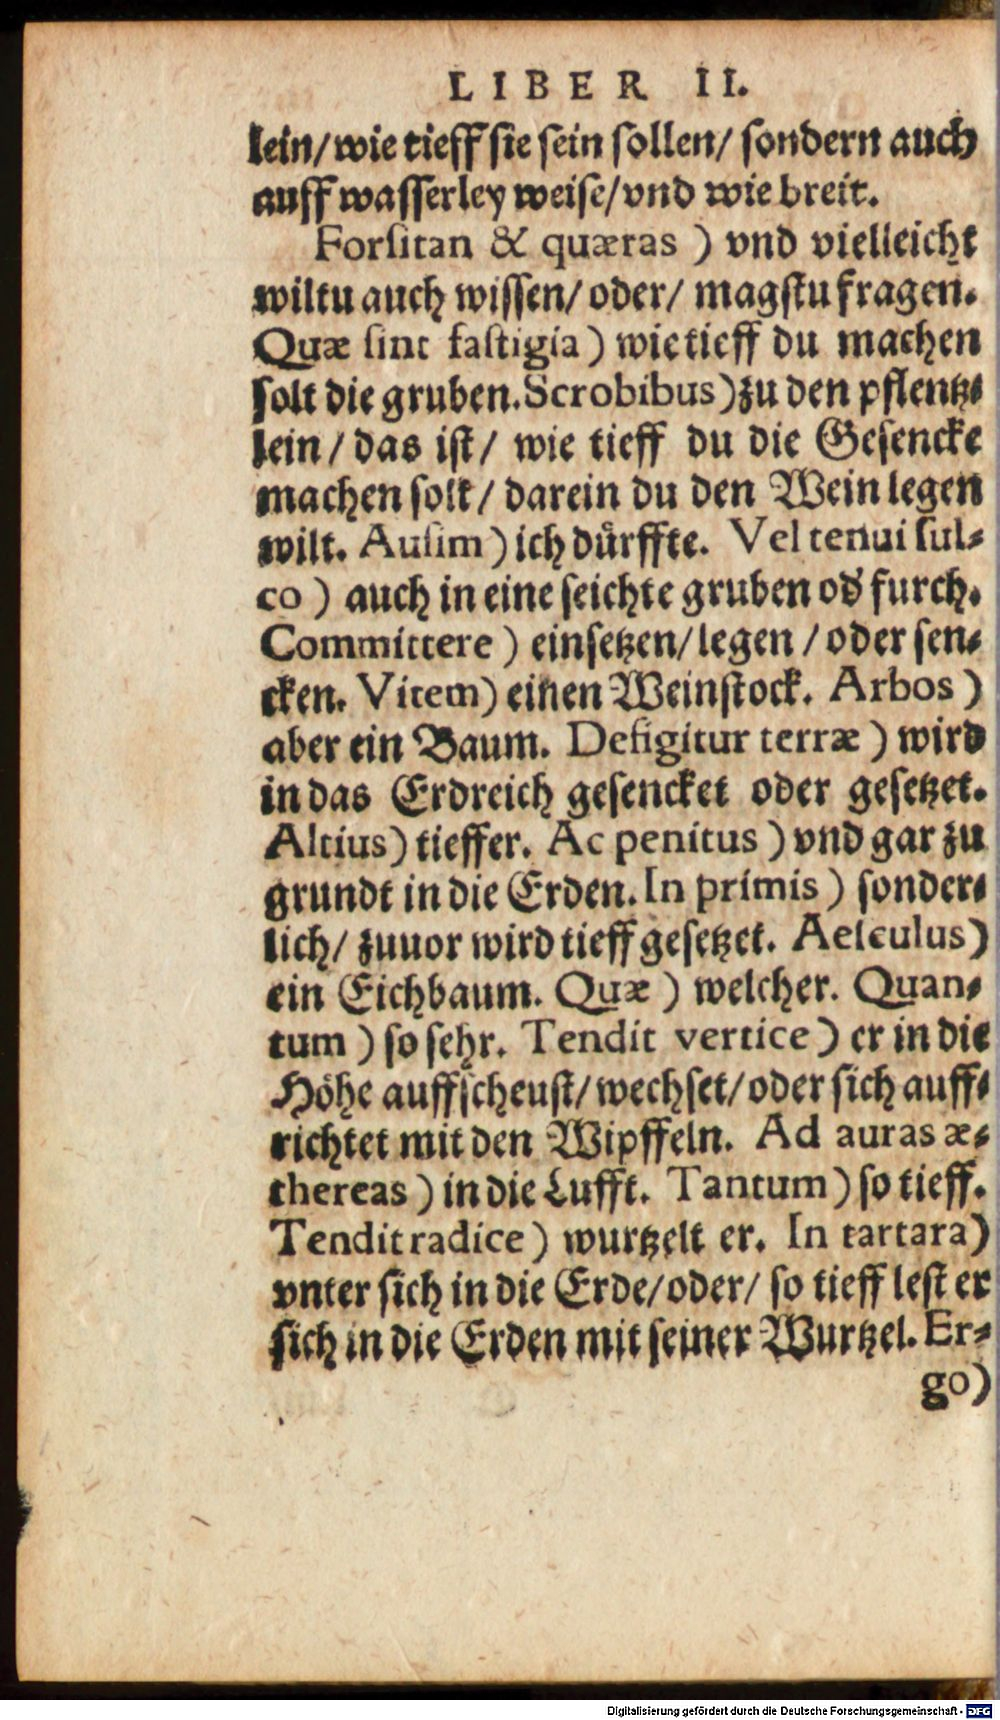 LIBER II.
lein/ wie tieff sie sein sollen/ sondern auch
auff wasserley weise/ vnd wie breit.
Forsitan & quæras ) vnd vielleicht
wiltu auch wissen/ oder/ magstu fragen.
Quæ sint fastigia ) wie tieff du machen
solt die gruben. Scrobibus) zu den pflentz-
lein / das ist/ wie tieff du die Gesencke
machen solt/ darein du den Wein legen
wilt. Ausim ) ich dürffte. Vel tenui sul-
co ) auch in eine seichte gruben od' furch.
Committere ) einsetzen/ legen / oder sen-
cken. Vitem) einen Weinstock. Arbos )
aber ein Baum. Defigitur terræ ) wird
in das Erdreich gesencket oder gesetzet.
Altius) tieffer. Ac penitus ) vnd gar zu
grundt in die Erden. In primis ) sonder-
lich/ zuuor wird tieff gesetzet. Aesculus)
ein Eichbaum. Quæ ) welcher. Quan-
tum ) so sehr. Tendit vertice ) er in die
Höhe auffscheust/ wechset/ oder sich auff-
richtet mit den Wipffeln. Ad auras æ-
thereas ) in die Lufft. Tantum ) so tieff.
Tendit radice ) wurtzelt er. In tartara)
vnter sich in die Erde/ oder/ so tieff lest er
sich in die Erden mit seiner Wurtzel. Er-
go)
Digitalisierung gefördert durch die Deutsche Forschungsgemeinschaft - DFG